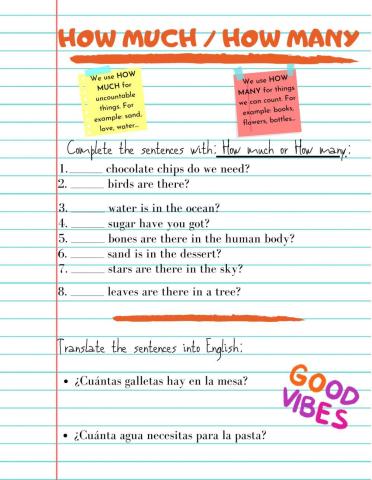 HOW MUCH / HOW MANY
We use HOW
MUCH for
uncountable
things. For
example: sand,
love, water...
We use HOW
MANY for things
we can count. For
example: books,
flowers, bottles...
Complete the sentences with: How much or How many:
1. ______ chocolate chips do we need?
2. ______ birds are there?
3. ______ water is in the ocean?
4. ______ sugar have you got?
5. ______ bones are there in the human body?
6. ______ sand is in the dessert?
7. ______ stars are there in the sky?
8. ______ leaves are there in a tree?
Translate the sentences into English:
• ¿Cuántas galletas hay en la mesa?
GOOD
VIBES
• ¿Cuánta agua necesitas para la pasta?